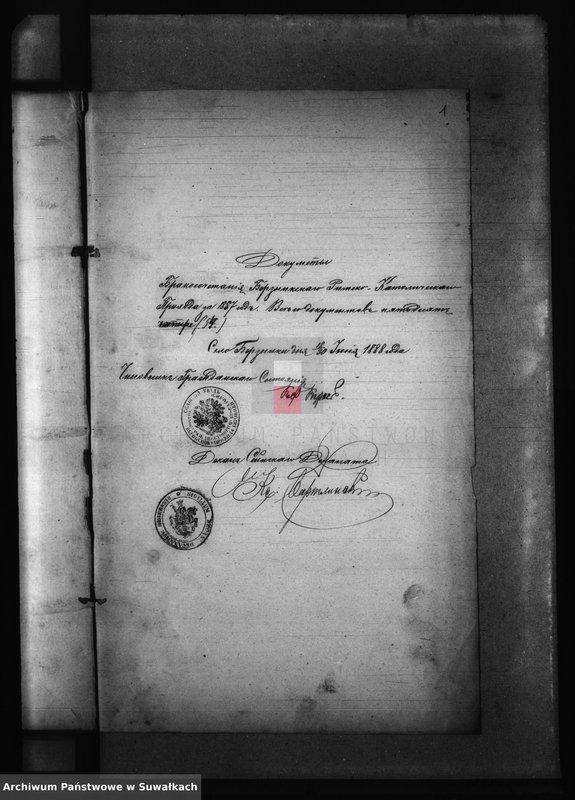 1
Документы
Бракосочетанія Бержникскаго Римско-Католическаго
Прихода за 1887 годъ. Всего документовъ пятьдесятъ
четыре (54.)
Село Бержники дня Іюня 1888 года
Чиновникъ Гражданскаго Состоянія
Деканъ Сейнскаго Деканата
Кс.
Archiwum Państwowe w Suwałkach